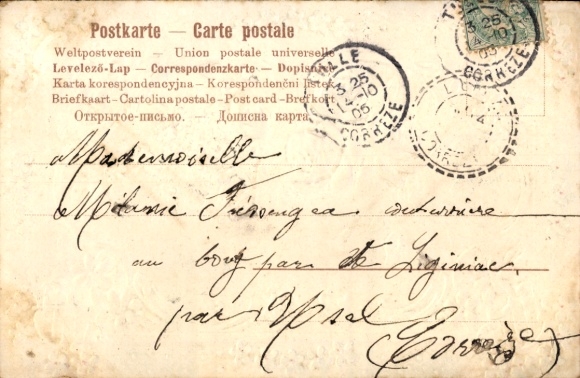 Postkarte — Carte postale
Weltpostverein — Union postale universelle
Levelező-Lap — Correspondenzkarte — Dopisnice
Karta korespondencyjna — Korespondenční lístek
Briefkaart — Cartolina postale — Post card — Brefkort
Открытое-письмо. — Дописна карта.
TULLE
3 25
14-10
05
CORRÈZE
3 25
-10
05
CORRÈZE
Mademoiselle
Mélanie couturière
au bourg par de Liginiac
par Ussel
Corrèze